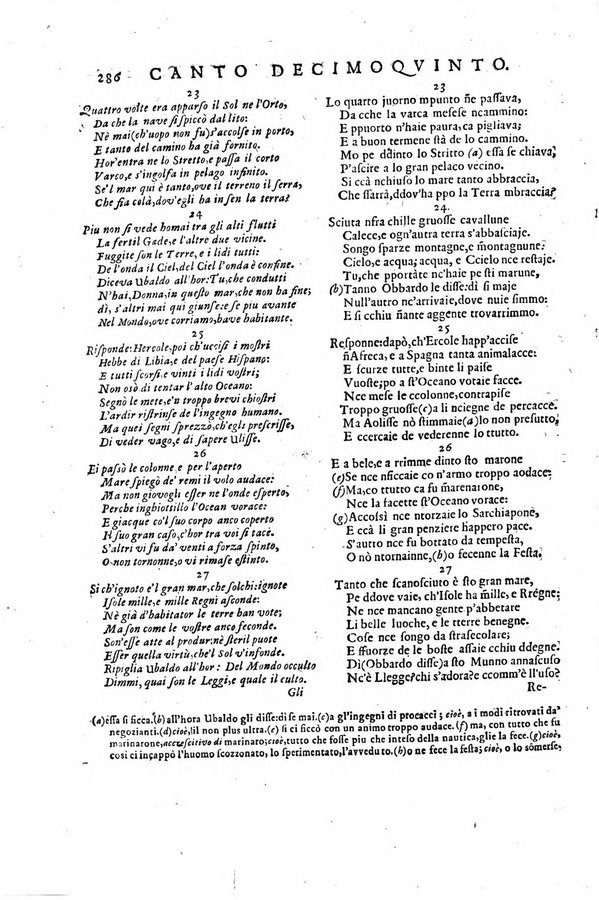 286 CANTO DECIMOQVINTO.
23
Quattro volte era apparso il Sol ne l'Orto,
Da che la nave si spiccò dal lito:
Nè mai (ch'uopo non fu) s'accolse in porto,
E tanto del camino ha già fornito.
Hor'entra ne lo Stretto, e passa il corto
Varco, e s'ingolfa in pelago infinito.
Se'l mar qui è tanto, ove il terreno il serra,
Che fia colà, dov'egli ha in sen la terra?
24
Piu non si vede homai tra gli alti flutti
La fertil Gade, e l'altre due vicine.
Fuggite son le Terre, e i lidi tutti:
De l'onda il Ciel, del Ciel l'onda è confine.
Diceva Ubaldo all'hor: Tu, che condutti
N'hai, Donna, in questo mar, che non ha fine;
dì, s'altri mai qui giunse: e se piu avante
Nel Mondo, ove corriamo, have habitante.
25
Risponde: Hercole, poi ch'uccisi i mostri
Hebbe di Libia, e del paese Hispano:
E tutti scorsi, e vinti i lidi vostri;
Non osò di tentar l'alto Oceano:
Segnò le mete, e'n troppo brevi chiostri
L'ardir ristrinse de l'ingegno humano.
Ma quei segni sprezzò, ch'egli prescrisse,
Di veder vago, e di sapere Ulisse.
26
Ei passò le colonne, e per l'aperto
Mare spiegò de' remi il volo audace:
Ma non giovogli esser ne l'onde esperto,
Perche inghiottillo l'Ocean vorace:
E giacque co'l suo corpo anco coperto
Il suo gran caso, c'hor tra voi si tace.
S'altri vi fu da' venti a forza spinto,
O non tornonne, o vi rimase estinto.
27
Si ch'ignoto è'l gran mar, che solchi: ignote
Isole mille, e mille Regni asconde:
Nè già d'habitator le terre han vote;
Ma son come le vostre anco feconde.
Son'esse atte al produr: nè steril puote
Esser quella virtù, che'l Sol v'infonde.
Ripiglia Ubaldo all'hor: Del Mondo occulto
Dimmi, quai son le Leggi, e quale il culto.
Gli
23
Lo quarto juorno mpunto ñe passava,
Da cche la varca mesese ncammino:
E ppuorto n'haie paura, ca pigliava;
E a buon termene stà de lo cammino.
Mo pe ddinto lo Stritto (a) essa se chiava,
P'ascire a lo gran pelaco vecino.
Si ccà nchiuso lo mare tanto abbraccia,
Che ssarrà, ddov'ha ppo la Terra mbraccia?
24.
Sciuta nfra chille gruosse cavallune
Calece, e ogn'autra terra s'abbasciaje.
Songo sparze montagne, e m̃ontagnune:
Cielo, e acqua; acqua, e Ccielo nce restaje.
Tu, che pportàte nc'haie pe sti marune,
(b) Tanno Obbardo le disse: dì si maje
Null'autro nc'arrivaie, dove nuie simmo:
E si cchiu ñante aggente trovarrimmo.
25
Responne: dapò, ch'Ercole happ'accise
ñAfreca, e a Spagna tanta animalacce:
E scurze tutte, e binte li paise
Vuoste; po a st'Oceano votaie facce.
Nce mese le ccolonne, contrapise
Troppo gruosse (c) a li nciegne de percacce.
Ma Aolisse nò stimmaje (a) lo non presutto,
E ccercaie de vederenne lo tutto.
26
E a bele, e a rrimme dinto sto marone
(e) Se nce nficcaie co n'armo troppo aodace:
(f) Ma, co ttutto ca fu marenarone,
Nce la facette st'Oceano vorace:
(g) Accossì nce ntorzaie lo Sarchiapone,
E ccà li gran penziere happero pace.
S'autro nce fu bottato da tempesta,
O nò ntornainne, (h) o fecenne la Festa.
27
Tanto che scanosciuto è sto gran mare,
Pe ddove vaie, ch'Isole ha m̃ille, e Rrégne:
Ne nce mancano gente p'abbetare
Li belle luoche, e le tterre benegne.
Cose nce songo da strasecolare;
E ffuorze de le boste assaie cchiu ddegne.
Dì (Obbardo disse) a sto Munno annascuso
Nc'è Llegge? chi s'adora? e ccomm'è ll'uso?
Re-
(a) essa si ficca. (b) all'hora Ubaldo gli disse: di se mai. (c) a gl'ingegni di procacci; cioè, a i modi ritrovati da'
negozianti. (d) cioè, il non plus ultra. (e) si ci ficcò con un animo troppo audace. (f) ma, con tutto che fu
marinarone, accrescitivo di marinaro; cioè, tutto che fosse piu che inteso della nautica, glie la fece. (g) cioè,
così ci incappò l'huomo scozzonato, lo sperimentato, l'avveduto. (h) o ne fece la festa; cioè, o lo sõmerse.